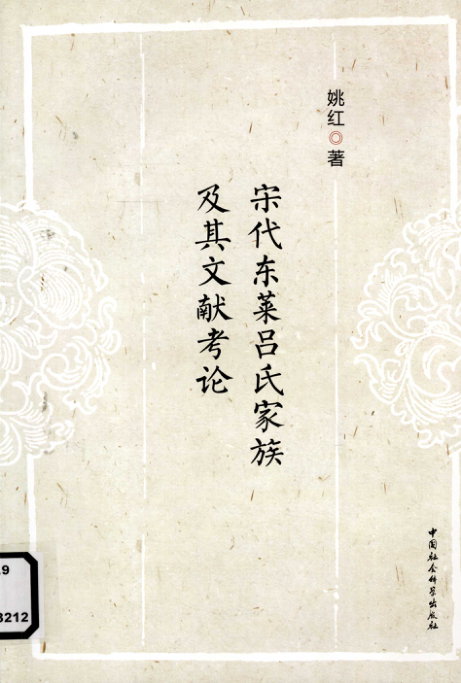 姚红◎著
宋代东莱吕氏家族
及其文献考论
中国社会科学出版社
.9
3212